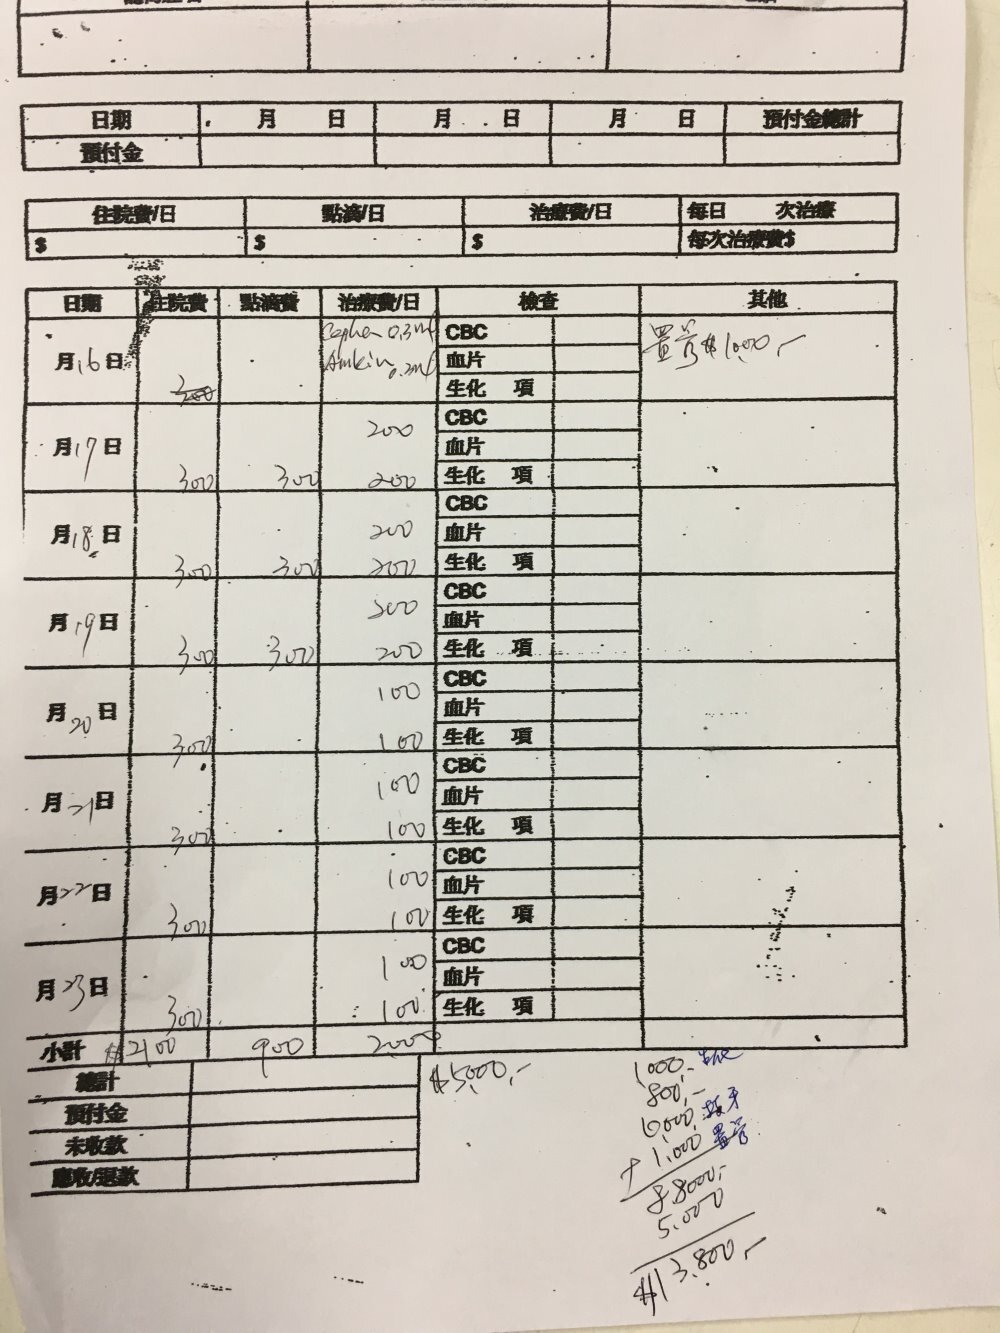 日期 月 日 月 日 月 日 預付金總計
預付金
住院費/日 點滴/日 治療費/日 每日 次治療
$ $ $ 每次治療費$
日期 住院費 點滴費 治療費/日 檢查 其他
月16日 300 0.3ml 0.2ml CBC 血片 生化 項 置管$1,000,-
月17日 300 300 200 200 CBC 血片 生化 項
月18日 300 300 200 200 CBC 血片 生化 項
月19日 300 300 200 CBC 血片 生化 項
月20日 300 100 100 CBC 血片 生化 項
月21日 300 100 100 CBC 血片 生化 項
月22日 300 100 100 CBC 血片 生化 項
月23日 300 100 100 CBC 血片 生化 項
小計 $2100 900 2000
總計 $5,000,-
預付金
未收款
應收/退款
1,000,-
800,-
6,000 拔牙
+ 1,000 置管
8,8000,-
5,000
$13,800,-